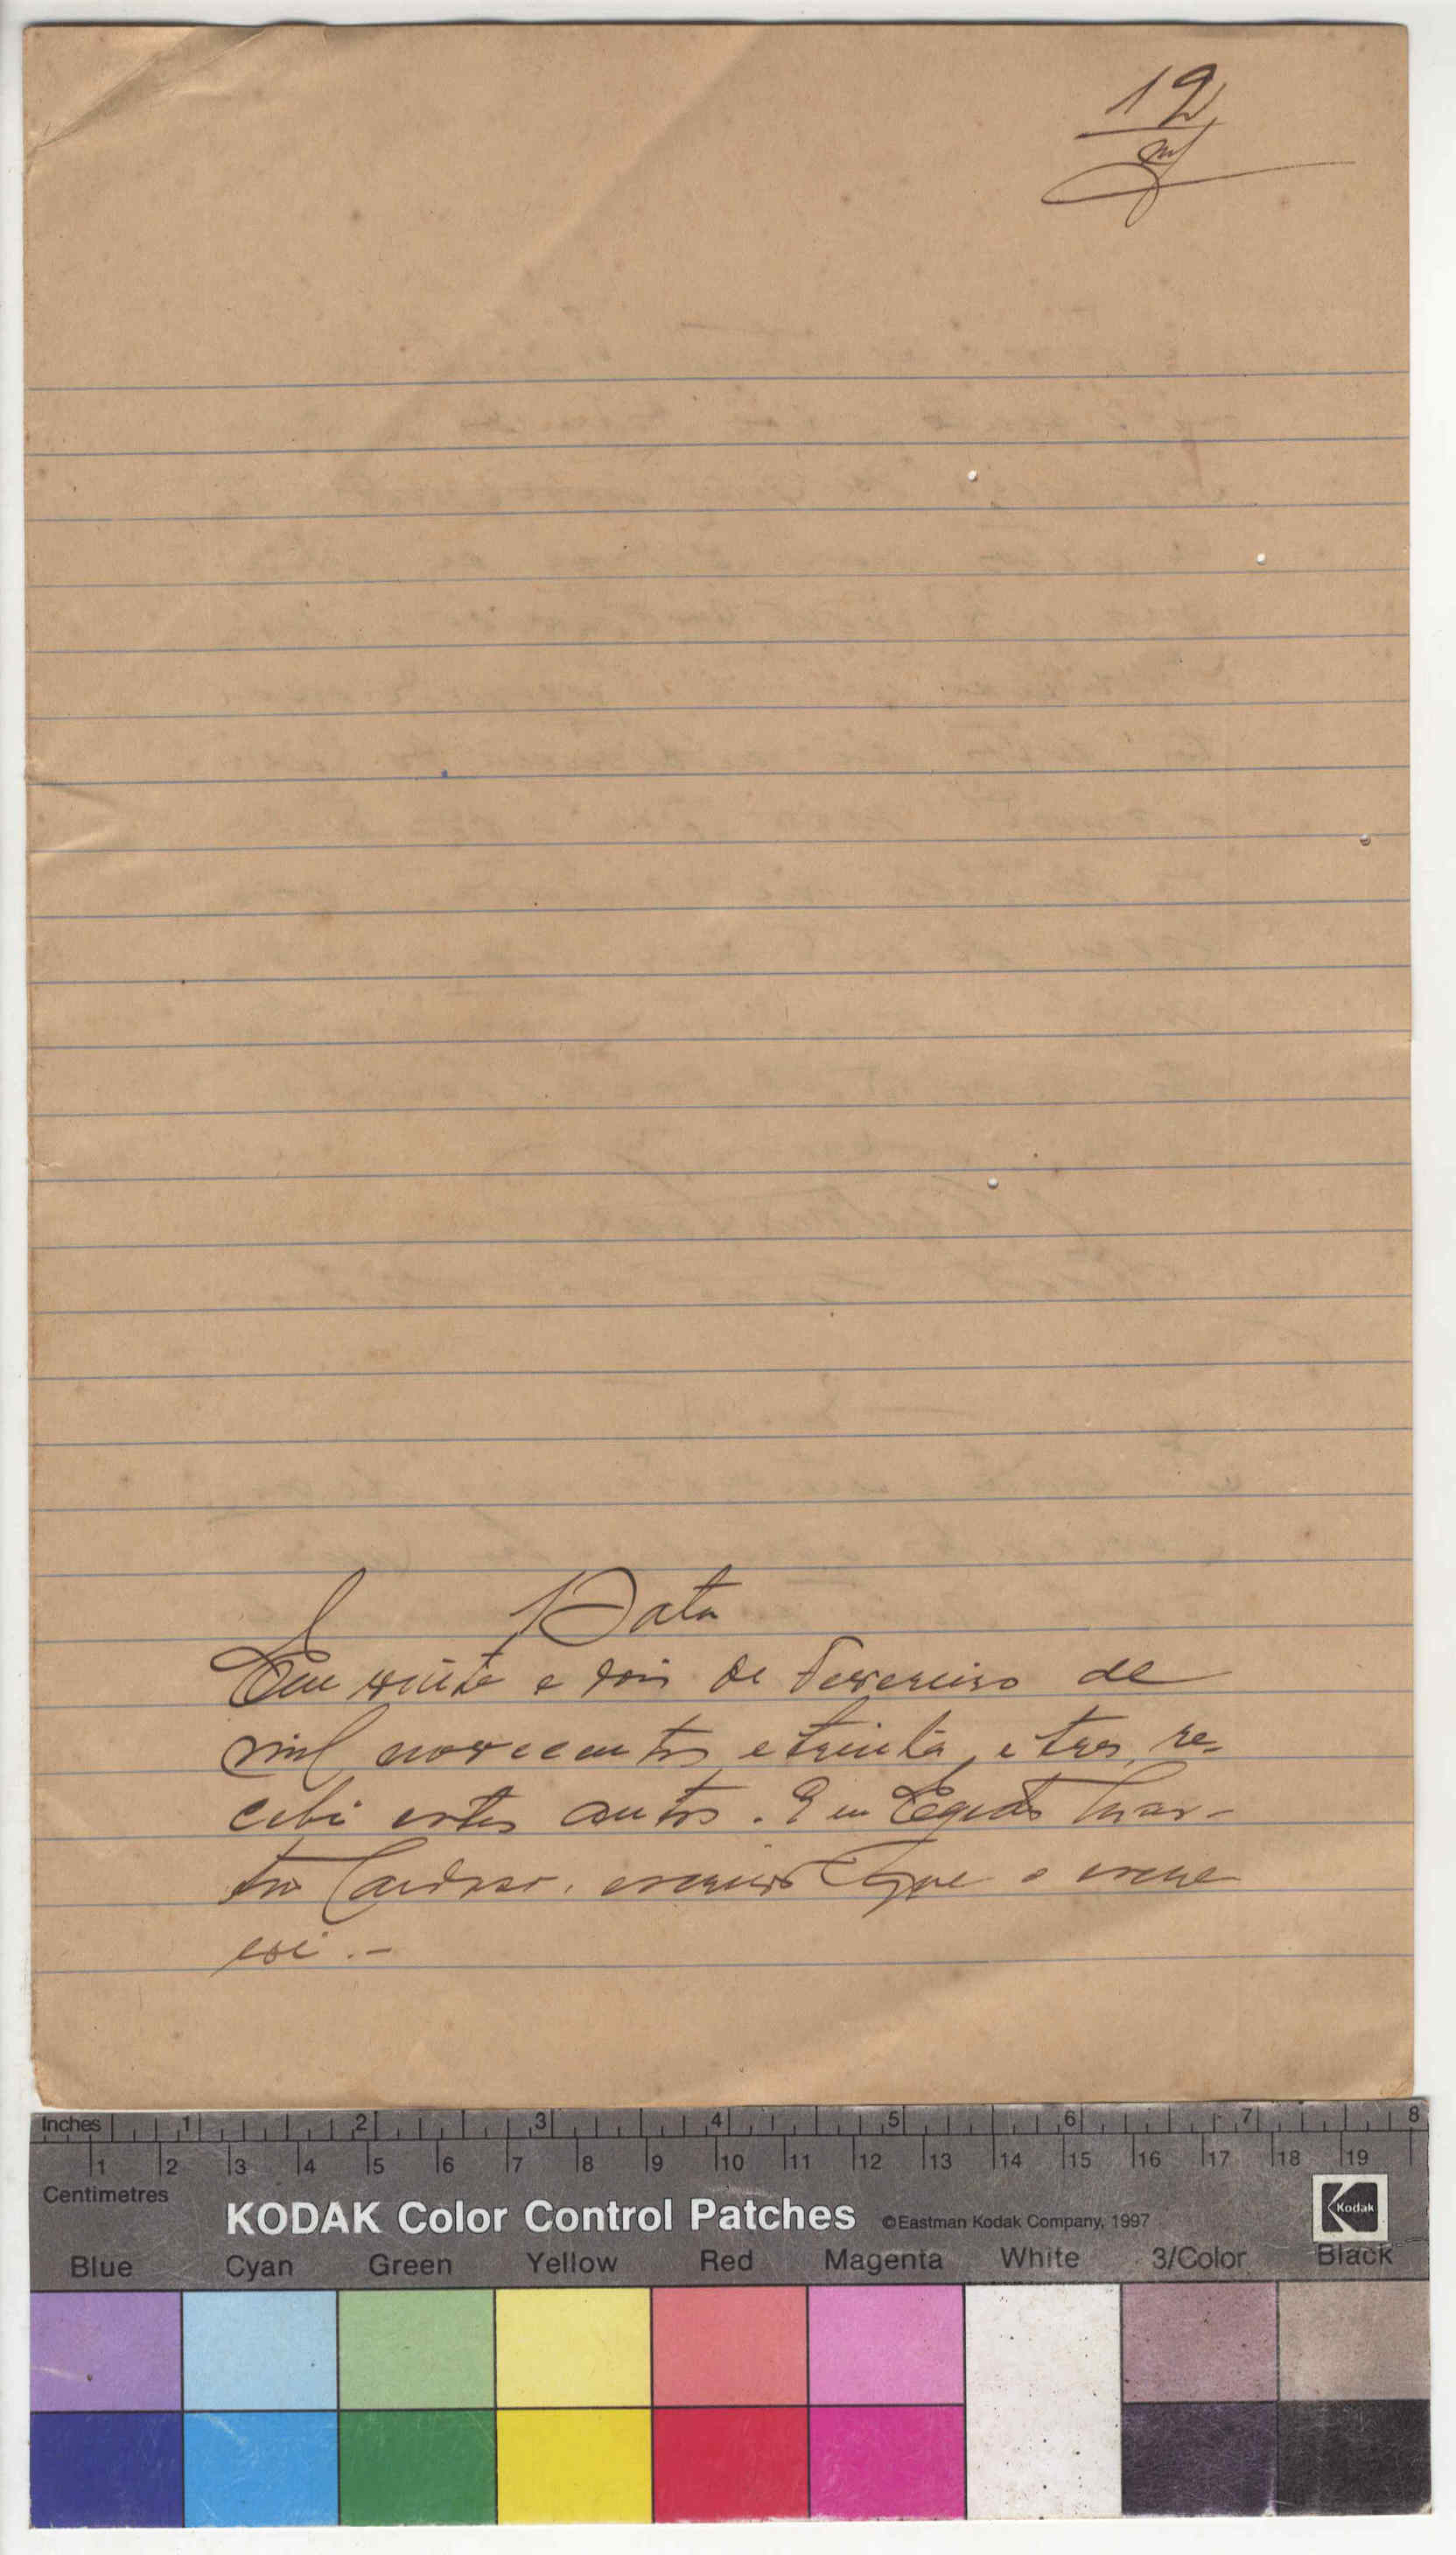 12
Data
Em vinte e dois de Fevereiro de
mil novecentos e trinta e tres, re-
cebi estes autos. Eu Egidio
Cardoso, escrivão que o escre
vi.-
Inches 1 2 3 4 5 6 7 8
1 2 3 4 5 6 7 8 9 10 11 12 13 14 15 16 17 18 19
Centimetres
KODAK Color Control Patches ©Eastman Kodak Company, 1997 Kodak
Blue Cyan Green Yellow Red Magenta White 3/Color Black